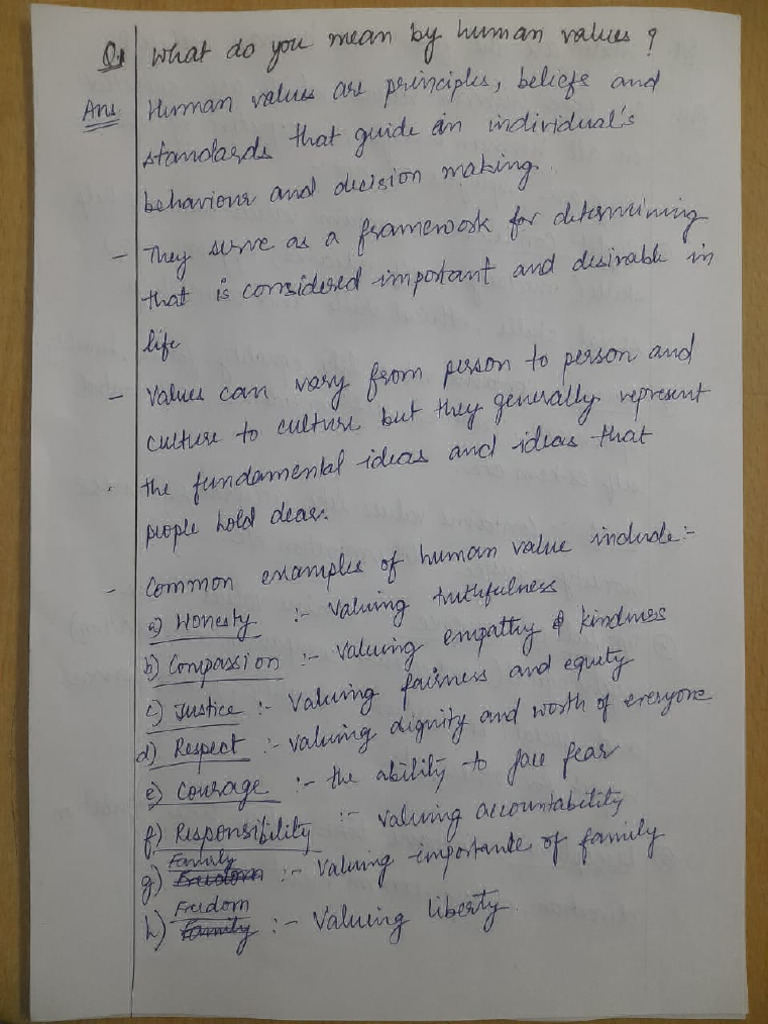 Q1 What do you mean by human values ?
Ans Human values are principles, beliefs and
standards that guide an individual's
behaviour and decision making.
- They serve as a framework for determining
that is considered important and desirable in
life
- Values can vary from person to person and
culture to culture but they generally represent
- the fundamental ideas and ideas that
people hold dear.
- Common examples of human value include:-
a) Honesty :- Valuing truthfulness
b) Compassion :- Valuing empathy & kindness
c) Justice :- Valuing fairness and equity
d) Respect :- Valuing dignity and worth of everyone
e) Courage :- the ability to face fear
f) Responsibility :- valuing accountability
g) Family :- Valuing importance of family
h) Freedom :- Valuing liberty.